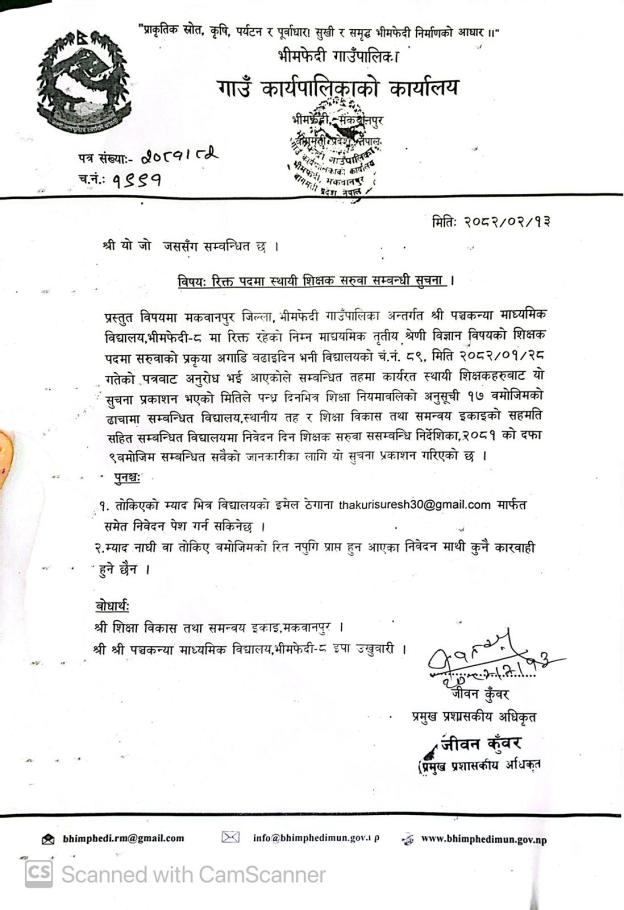 "प्राकृतिक स्रोत, कृषि, पर्यटन र पूर्वाधारः सुखी र समृद्ध भीमफेदी निर्माणको आधार ॥"
भीमफेदी गाउँपालिका
गाउँ कार्यपालिकाको कार्यालय
भीमफेदी, मकवानपुर
बागमती प्रदेश, नेपाल
पत्र संख्याः- २०८१।८२
च.नं.: १९९१
मितिः २०८२/०२/१३
श्री यो जो जससँग सम्वन्धित छ ।
विषयः रिक्त पदमा स्थायी शिक्षक सरुवा सम्बन्धी सुचना ।
प्रस्तुत विषयमा मकवानपुर जिल्ला, भीमफेदी गाउँपालिका अन्तर्गत श्री पञ्चकन्या माध्यमिक
विद्यालय,भीमफेदी-८ मा रिक्त रहेको निम्न माद्ययमिक तृतीय श्रेणी विज्ञान विषयको शिक्षक
पदमा सरुवाको प्रकृया अगाडि वढाइदिन भनी विद्यालयको चं.नं. ८९, मिति २०८२/०१/२८
गतेको पत्रवाट अनुरोध भई आएकोले सम्वन्धित तहमा कार्यरत स्थायी शिक्षकहरुवाट यो
सुचना प्रकाशन भएको मितिले पन्ध्र दिनभित्र शिक्षा नियमावलिको अनुसूची १७ वमोजिमको
ढाचामा सम्वन्धित विद्यालय,स्थानीय तह र शिक्षा विकास तथा समन्वय इकाइको सहमति
सहित सम्वन्धित विद्यालयमा निवेदन दिन शिक्षक सरुवा ससम्वन्धि निर्देशिका,२०८१ को दफा
९वमोजिम सम्वन्धित सवैको जानकारीका लागि यो सुचना प्रकाशन गरिएको छ ।
पुनश्चः
१. तोकिएको म्याद भित्र विद्यालयको इमेल ठेगाना thakurisuresh30@gmail.com मार्फत
समेत निवेदन पेश गर्न सकिनेछ ।
२.म्याद नाघी वा तोकिए वमोजिमको रित नपुगि प्राप्त हुन आएका निवेदन माथी कुनै कारवाही
हुने छैन ।
वोधार्थः
श्री शिक्षा विकास तथा समन्वय इकाइ,मकवानपुर ।
श्री श्री पञ्चकन्या माध्यमिक विद्यालय,भीमफेदी-८ इपा उखुवारी ।
जीवन कुँवर
प्रमुख प्रशासकीय अधिकृत
जीवन कुँवर
प्रमुख प्रशासकीय अधिकृत
bhimphedi.rm@gmail.com info@bhimphedimun.gov.np www.bhimphedimun.gov.np
CS Scanned with CamScanner